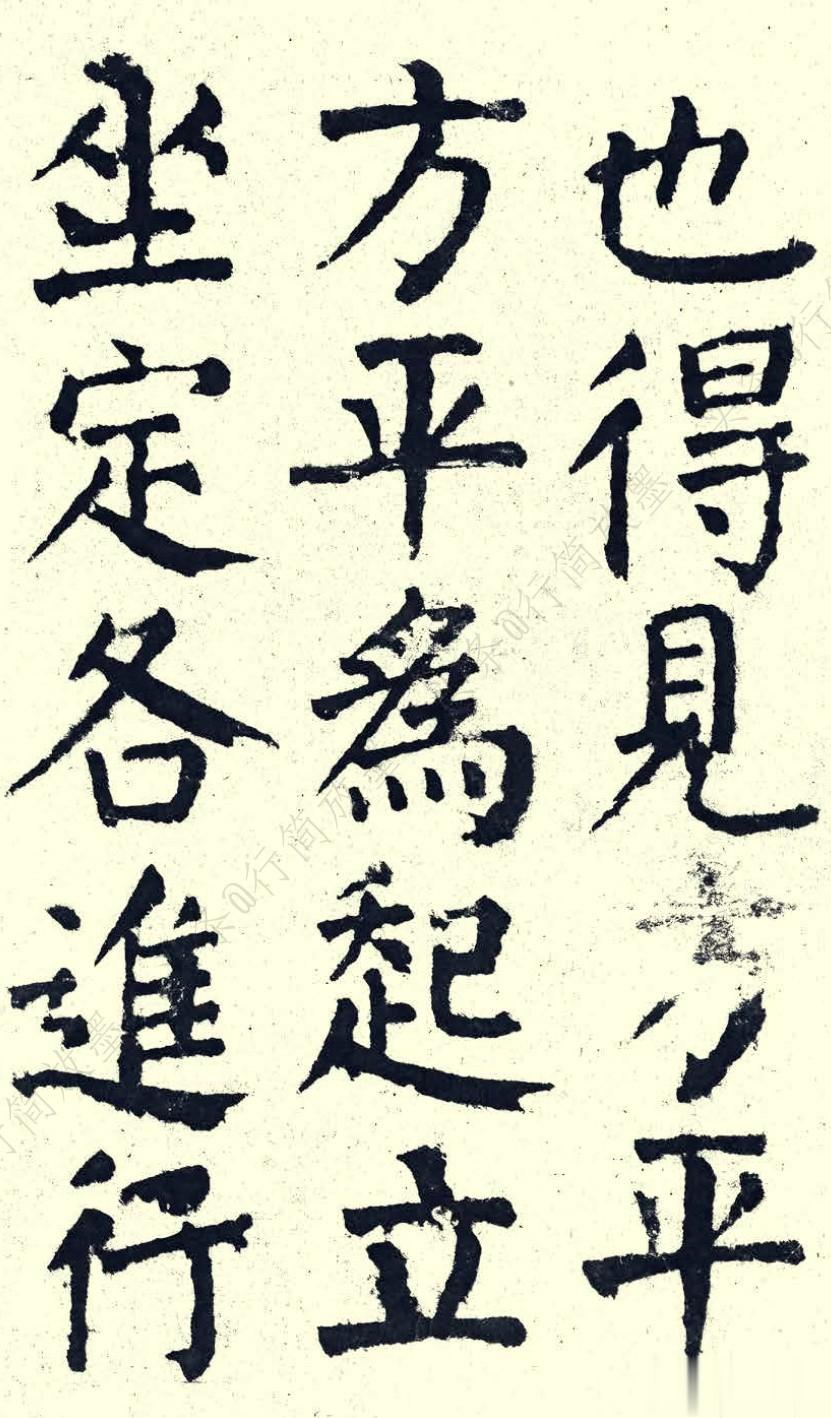 也得見方平
方平為起立
坐定各進行